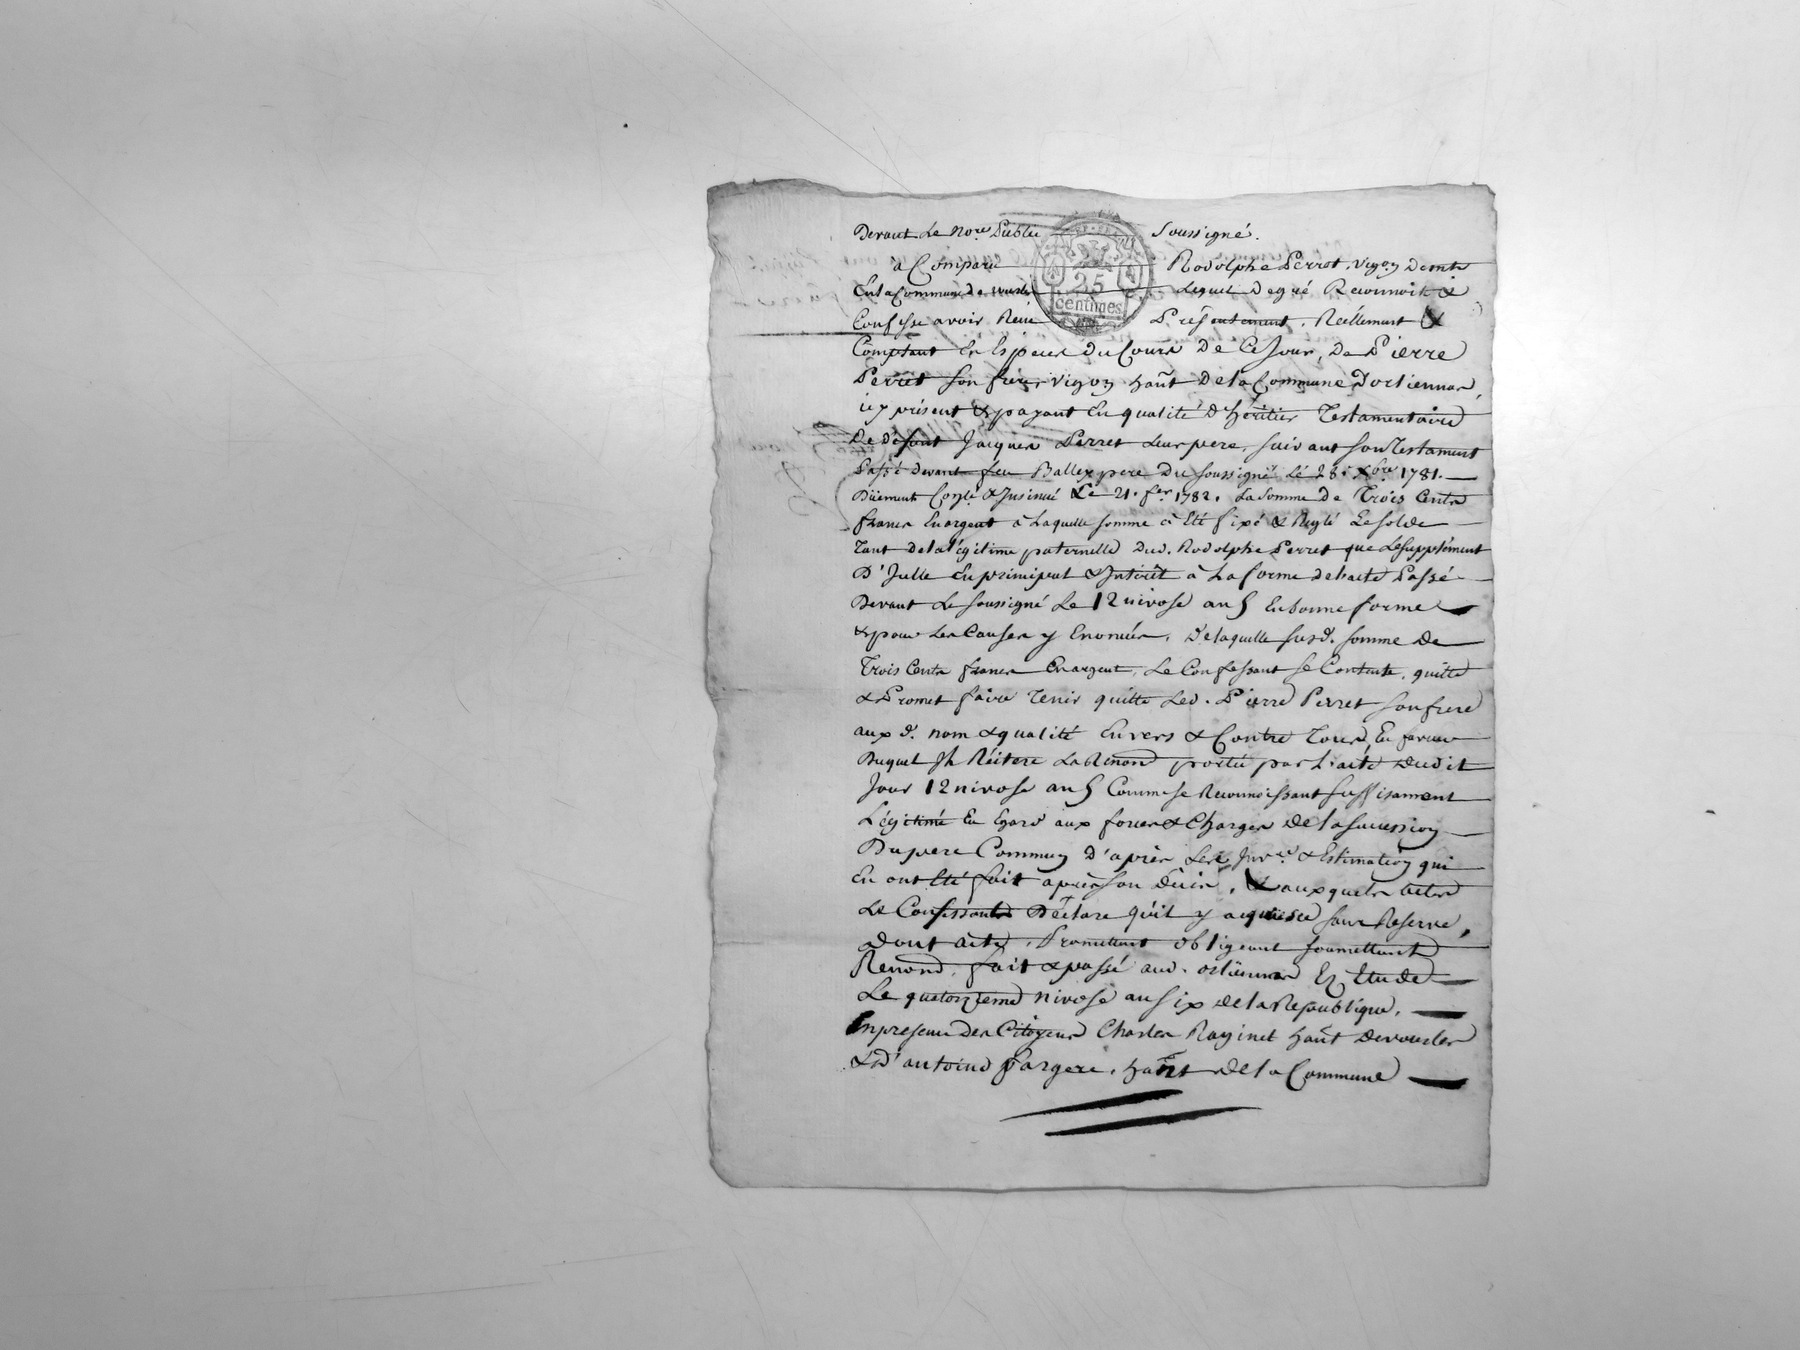 Devant Le No.re Public soussigné.
a Comparu Rodolphe Perret, vigon demt
En la Commune de vourles Lequel De gré Reconnoit &
25
centimes
Confesse avoir Reçu Présentement, Réellement &
Comptant En Especes du Cours De Ce Jour, De Pierre
Perret son frere, vigon hañt De la Commune
icy présent & payant En qualité D'héritier Testamentaire
De Défunt Jacques Perret Leur pere, suivant son Testament
Passé devant feu Balley pere Du soussigné Le 28. Xbre 1781.
Düement Conlé & Insinué Le 21. fer 1782. La somme De Trois Cents
francs En argent à Laquelle somme a Eté fixé & Reglé Le solde
Tant de la légitime paternelle Dud. Rodolphe Perret que Le supplément
D'Icelle En principal & Intérêt à La forme de L'acte Passé
Devant Le soussigné Le 12 nivose an 5 En bonne forme
& pour Les Causes y Enoncées, De laquelle susd. somme De
Trois Cents francs En argent, Le Confessant se Contente, quitte
& Promet faire Tenir quitte Led. Pierre Perret son frere
aux d. nom & qualité Envers & Contre Tous, En faveur
Duquel Il Réitere La Renond portée par L'acte Dudit
Jour 12 nivose an 5 Comme se Reconnoissant suffisament
Légitimé Eu Egard aux forces & Charges De la succession
Du pere Commun D'après Les Invre & Estimation qui
En ont Eté fait après son Décès, & auxquels actes
Le Confessant Déclare qu'il y acquiesce sans Reserve,
Dont acte, Promettant obligeant soumettant
Renond. fait & passé aud. En Etude
Le quatorzieme nivose an six de la Republique,
En presence des Citoyens Charles Raginet hañt De vourles
& D'antoine fargere, hañt de la Commune